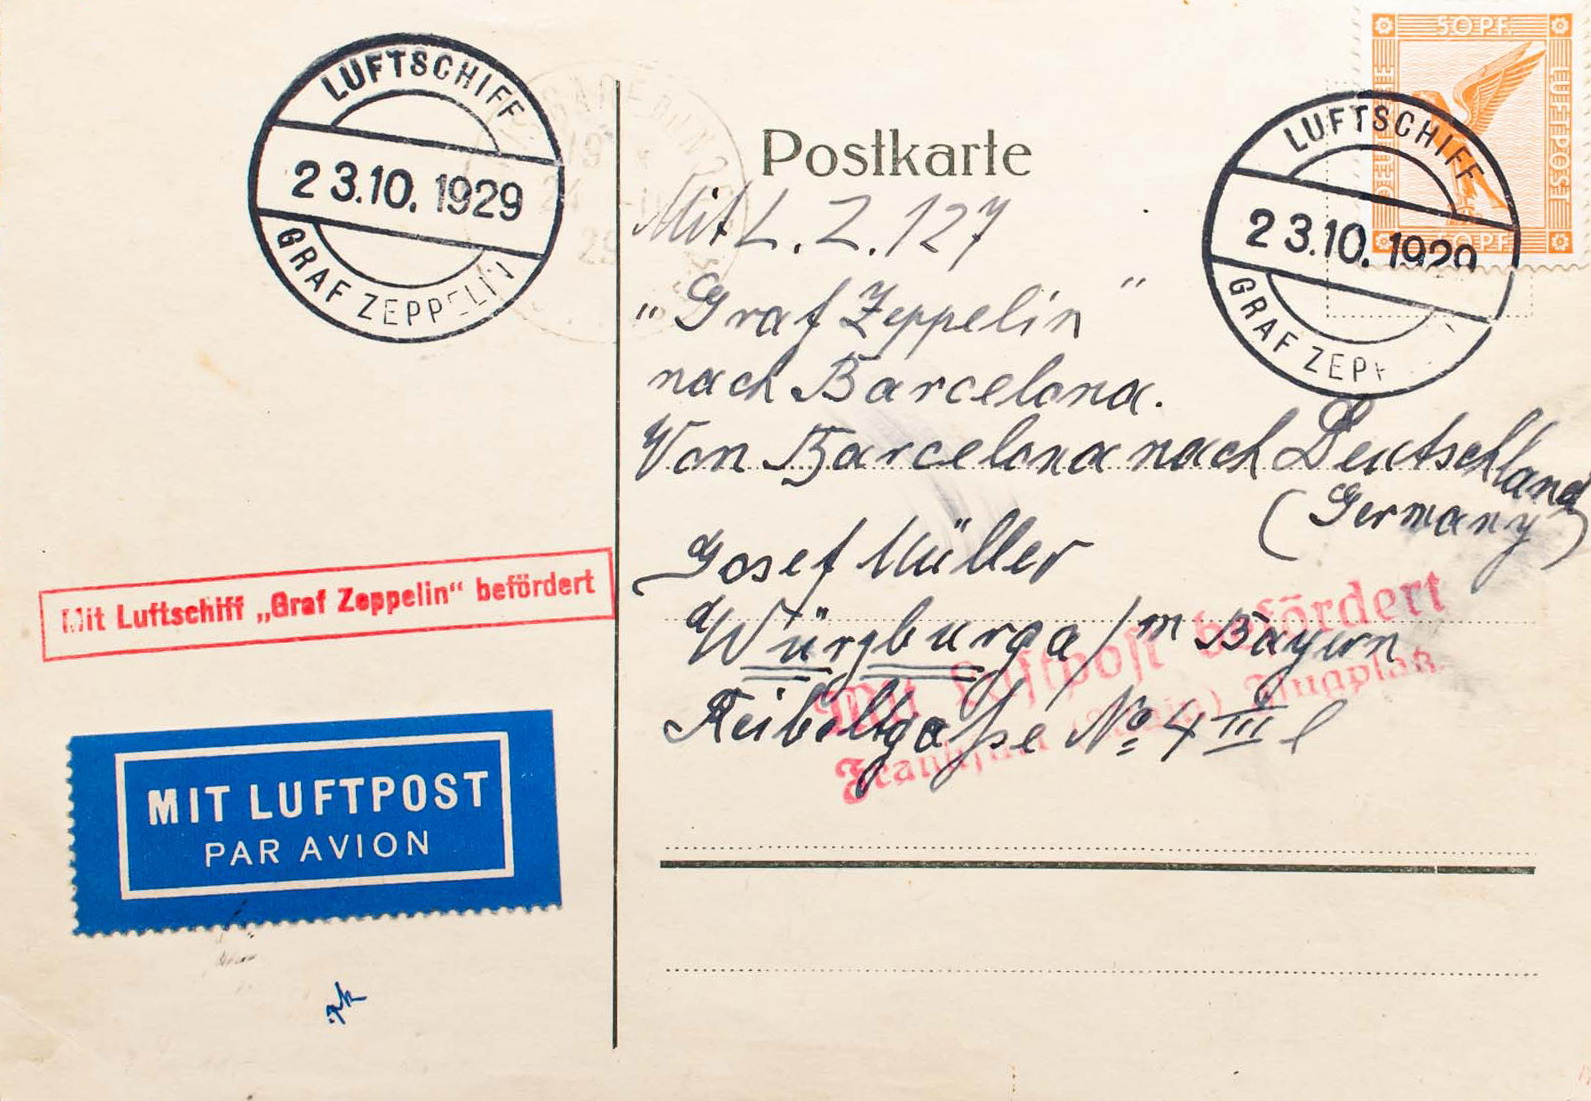 LUFTSCHIFF
23.10.1929
GRAF ZEPPELIN
50 PF.
DEUTSCHE
LUFTPOST
50 PF.
LUFTSCHIFF
23.10.1929
GRAF ZEPP
Postkarte
Mit L.Z.127
„Graf Zeppelin"
nach Barcelona.
Von Barcelona nach Deutschland
(Germany)
Josef Müller
Würzburg a/m Bayern
Reibeltgaße No 4 III l
Mit Luftpost befördert
Frankfurt (Main) Flugplatz.
Mit Luftschiff „Graf Zeppelin“ befördert
MIT LUFTPOST
PAR AVION